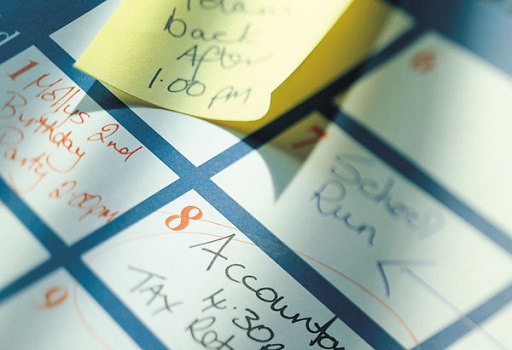 back
After
1.00 pm
1 Mollys 2nd
Birthday
Party 2.00pm
6
7
School
Run
8
Accountan
4.30p
TAX
Ret
9